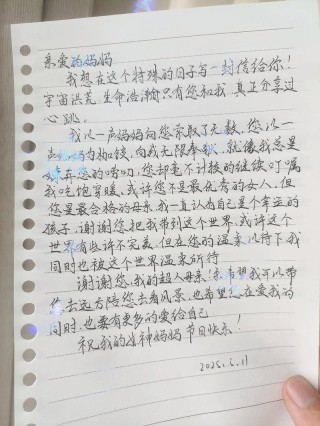 亲爱的妈妈
我想在这个特殊的日子写一封信给你！
宇宙洪荒，生命浩瀚只有您和我，真正分享过
心跳。
我以一声妈妈向您索取了无数，您以一
声妈妈为枷锁，向我无限奉献，就像我总是
嫌弃您的唠叨，您却毫不计较的继续叮嘱
我吃饱穿暖，或许您不是最优秀的女人，但
您是最合格的母亲，我一直认为自己是个幸运的
孩子，谢谢您把我带到这个世界，或许这个
世界有些许不完美，但在您的温柔以待下我
同时也被这个世界温柔所待
谢谢您，我的超人母亲！我希望我可以带
您去远方陪您去看风景，也希望您在爱我的
同时，也要有更多的爱给自己
祝我的女神妈妈节日快乐！
2025.5.11